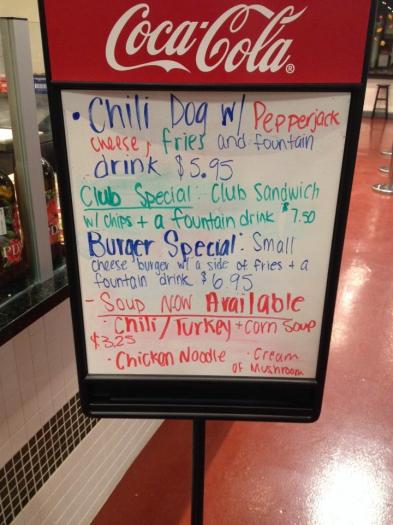 Coca-Cola®
• Chili Dog w/ Pepperjack
cheese, fries and fountain
drink $5.95
Club Special: Club Sandwich
w/ chips + a fountain drink $7.50
Burger Special: Small
cheese burger w/ a side of fries + a
fountain drink $6.95
- Soup Now Available
• Chili / Turkey + Corn Soup
$3.25
• Chicken Noodle • Cream
of Mushroom